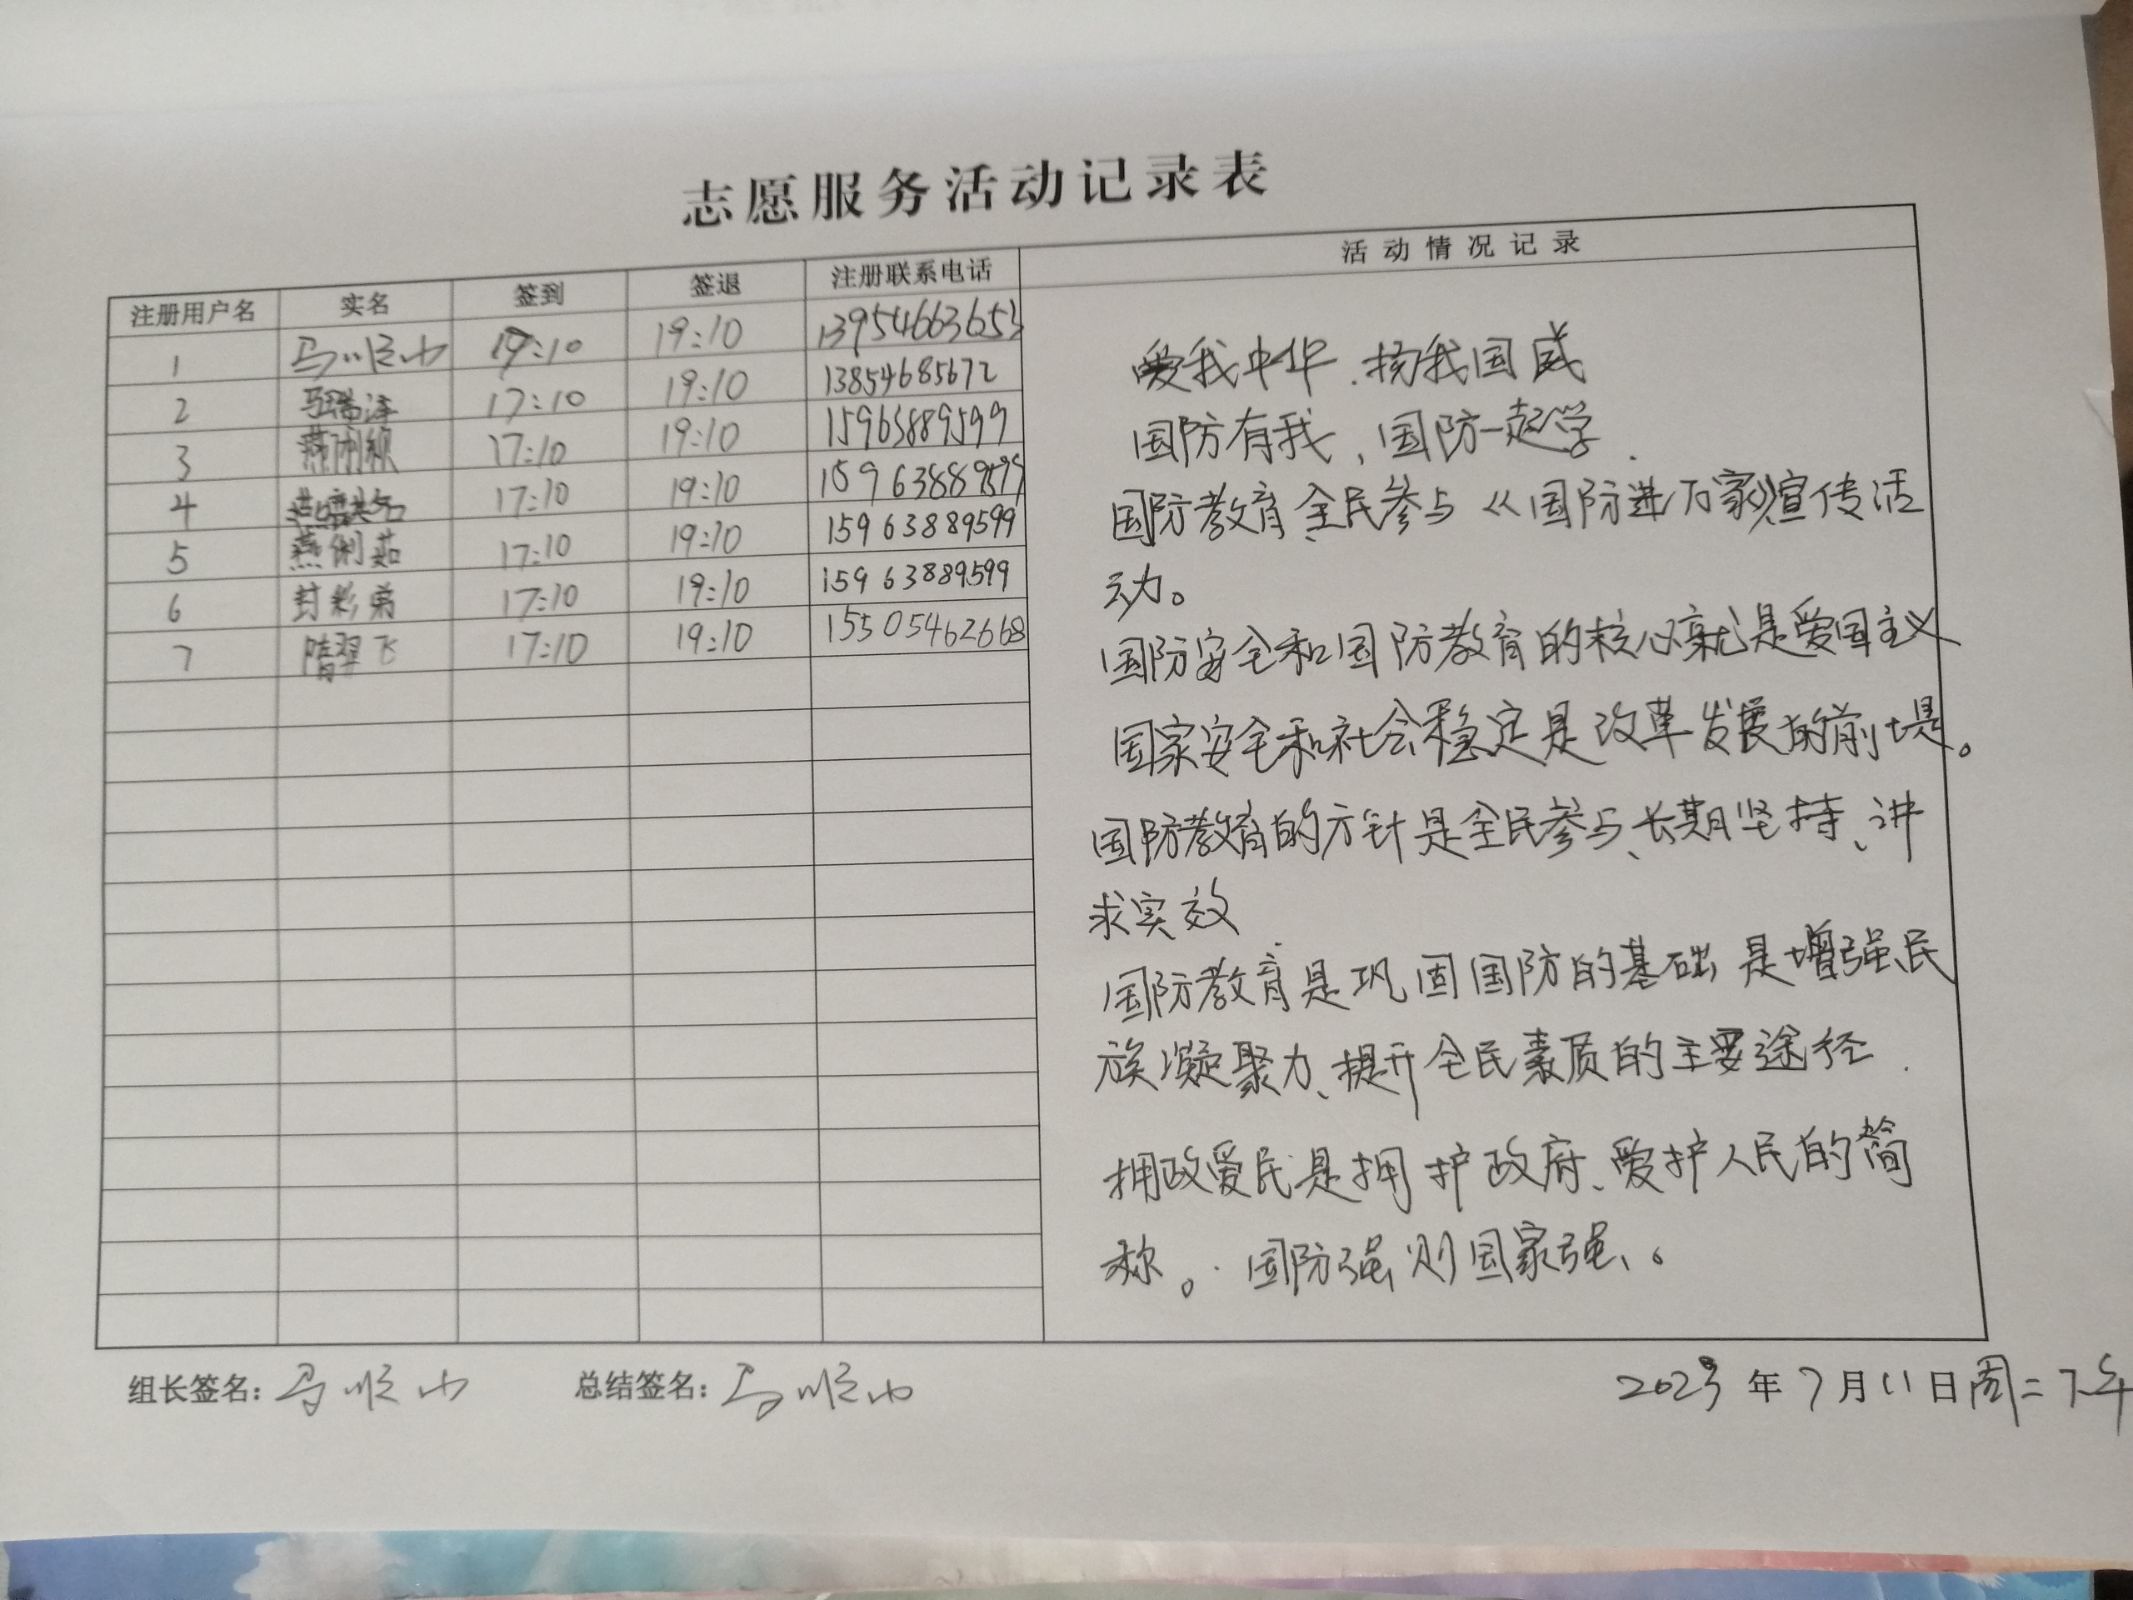 志愿服务活动记录表
注册用户名 实名 签到 签退 注册联系电话 活动情况记录
1 马顺山 17:10 19:10 13954663653
2 马瑞泽 17:10 19:10 13854685672
3 17:10 19:10 15963889599
4 17:10 19:10 15963889599
5 燕俐茹 17:10 19:10 15963889599
6 封彩弟 17:10 19:10 15963889599
7 隋翠飞 17:10 19:10 15505462668
爱我中华.扬我国威
国防有我、国防一起学.
国防教育、全民参与《国防进万家》宣传活
动。
国防安全和国防教育的核心就是爱国主义
国家安全和社会稳定是改革发展的前堤。
国防教育的方针是全民参与、长期坚持、讲
求实效
国防教育是巩固国防的基础 是增强民
族凝聚力、提升全民素质的主要途径.
拥政爱民是拥护政府、爱护人民的简
称。国防强则国家强。
组长签名: 马顺山 总结签名: 马顺山 2023年7月11日周二下午